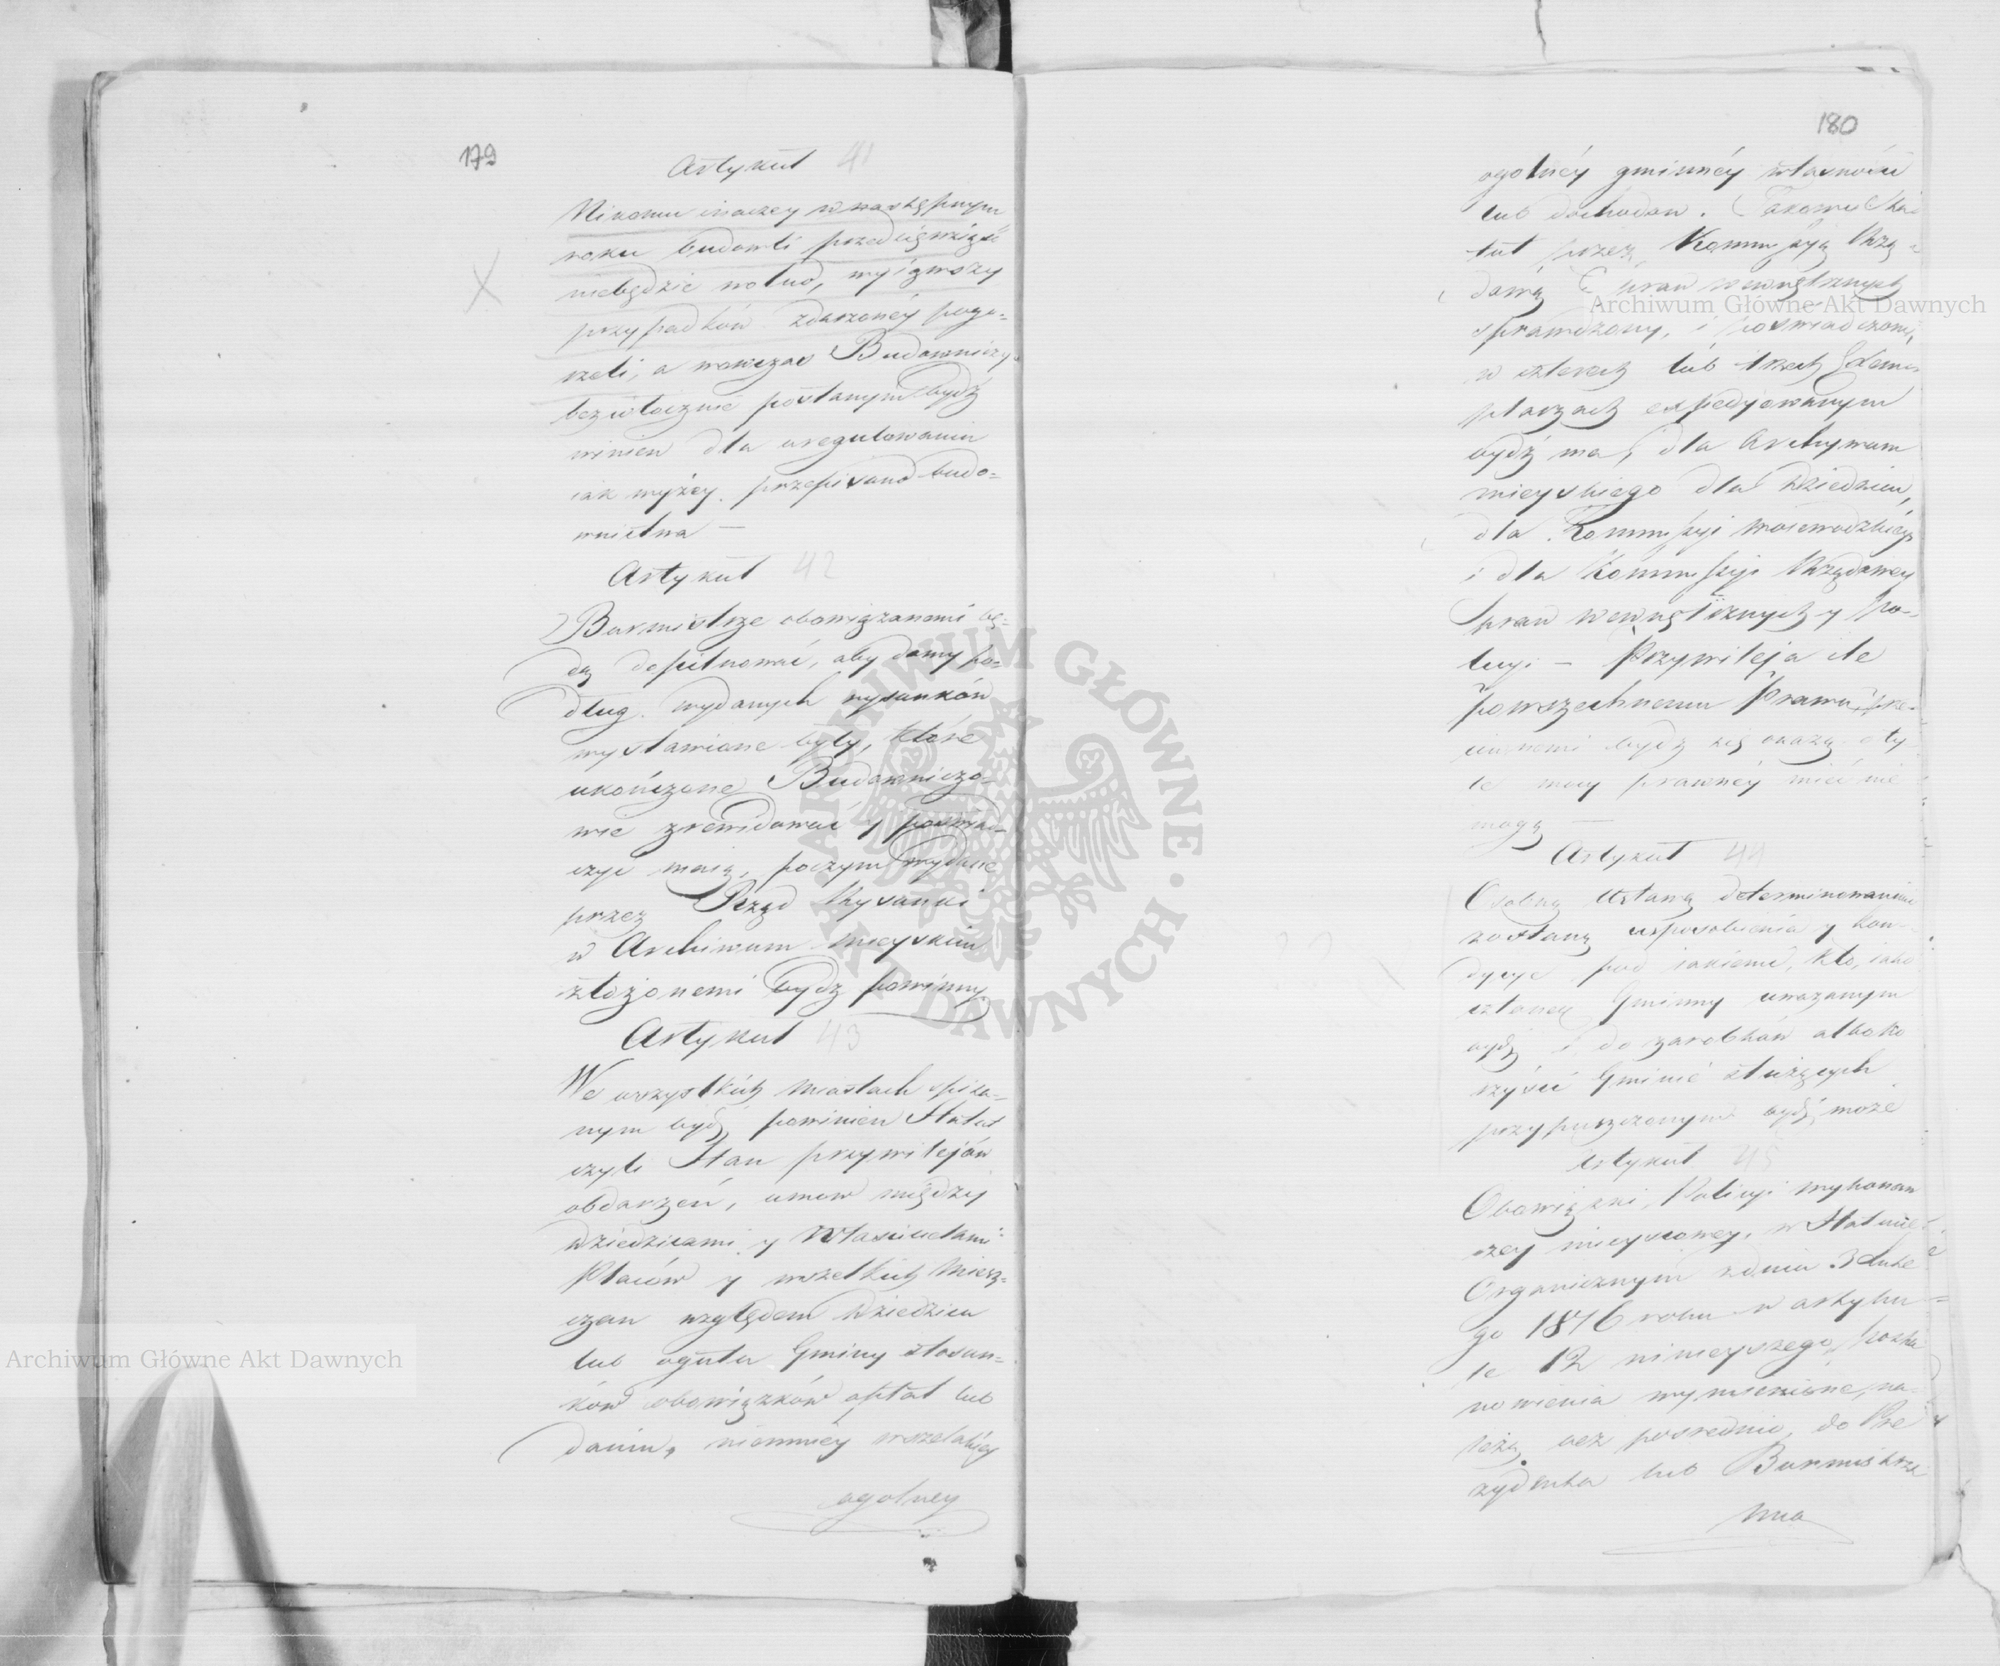 179
Artykuł 41
Nikomu inaczey w następnym
roku budowli przedsięwziąść
niebędzie wolno, wyiąwszy
przypadków zdarzonéy pogo-
rzeli, a wowczas Budowniczy
bezzwłocznie postanym bydź
winien dla uregulowania
iak wyżey przepisano budo-
wnictwa —
Artykuł 42
Burmistrze obowiązanemi bę-
dą dopilnować, aby domy po-
dług wydanych rysunków
wystawione były, które
ukończone Budowniczo-
wie zrewidować y poświad-
czyć maią, poczym wydane
przez Rząd Rysunki
w Archiwum mieyskim
złożonemi bydź powinny
Artykuł 43
We wszystkich Miastach spisa-
nym bydź powinien Status
czyli Stan przywilejów
obdarzeń, umow między
dziedzicami y Właścicielami
Placów y wszelkich Miesz-
czan względem dziedzica
lub ogułu Gminy stosun-
ków obowiązków opłat lub
danin, niemniey wszelakiey
ogolney
180
ogolnéy gminnéy własności
lub dochodow. Takowy Sta
tut przez Kommissyą Rzą-
dową Spraw wewnętrznych
sprawdzony, i poświadczony,
w czterech lub trzech Exem-
plarzach expedyowanym
bydź ma, dla Archywum
mieyskiego dla dziedzica,
dla Kommissyi Woiewodzkiéy
i dla Kommissyi Rządowey
Spraw wewnętrznych y Po-
licyi — Przywileja ile
powszechnemu Prawu prze-
ciwnemi bydź się okażą o ty
le mocy prawnéy mieć nie
mogą —
Artykuł 44
Osobną Ustawą determinowanemi
zostaną usposobienia y kon-
dycye pod iakiemi, kto, iako
członek Gminny uważanym
bydź i do zarobków albo ko
rzyści Gminie służących
przypuszczonym bydź może
Artykuł 45
Obowiązki Policyi wykonaw
czey mieyscowey, w Statucie
Organicznym zdnia 3 Lute
go 1816 roku w artyku-
le 12 ninieyszego postа
nowienia wymienione, na-
leżą bez posrednio, do Pre
zydenta lub Burmistrza
Archiwum Główne Akt Dawnych
Archiwum Główne Akt Dawnych
ARCHIWUM GŁÓWNE AKT DAWNYCH